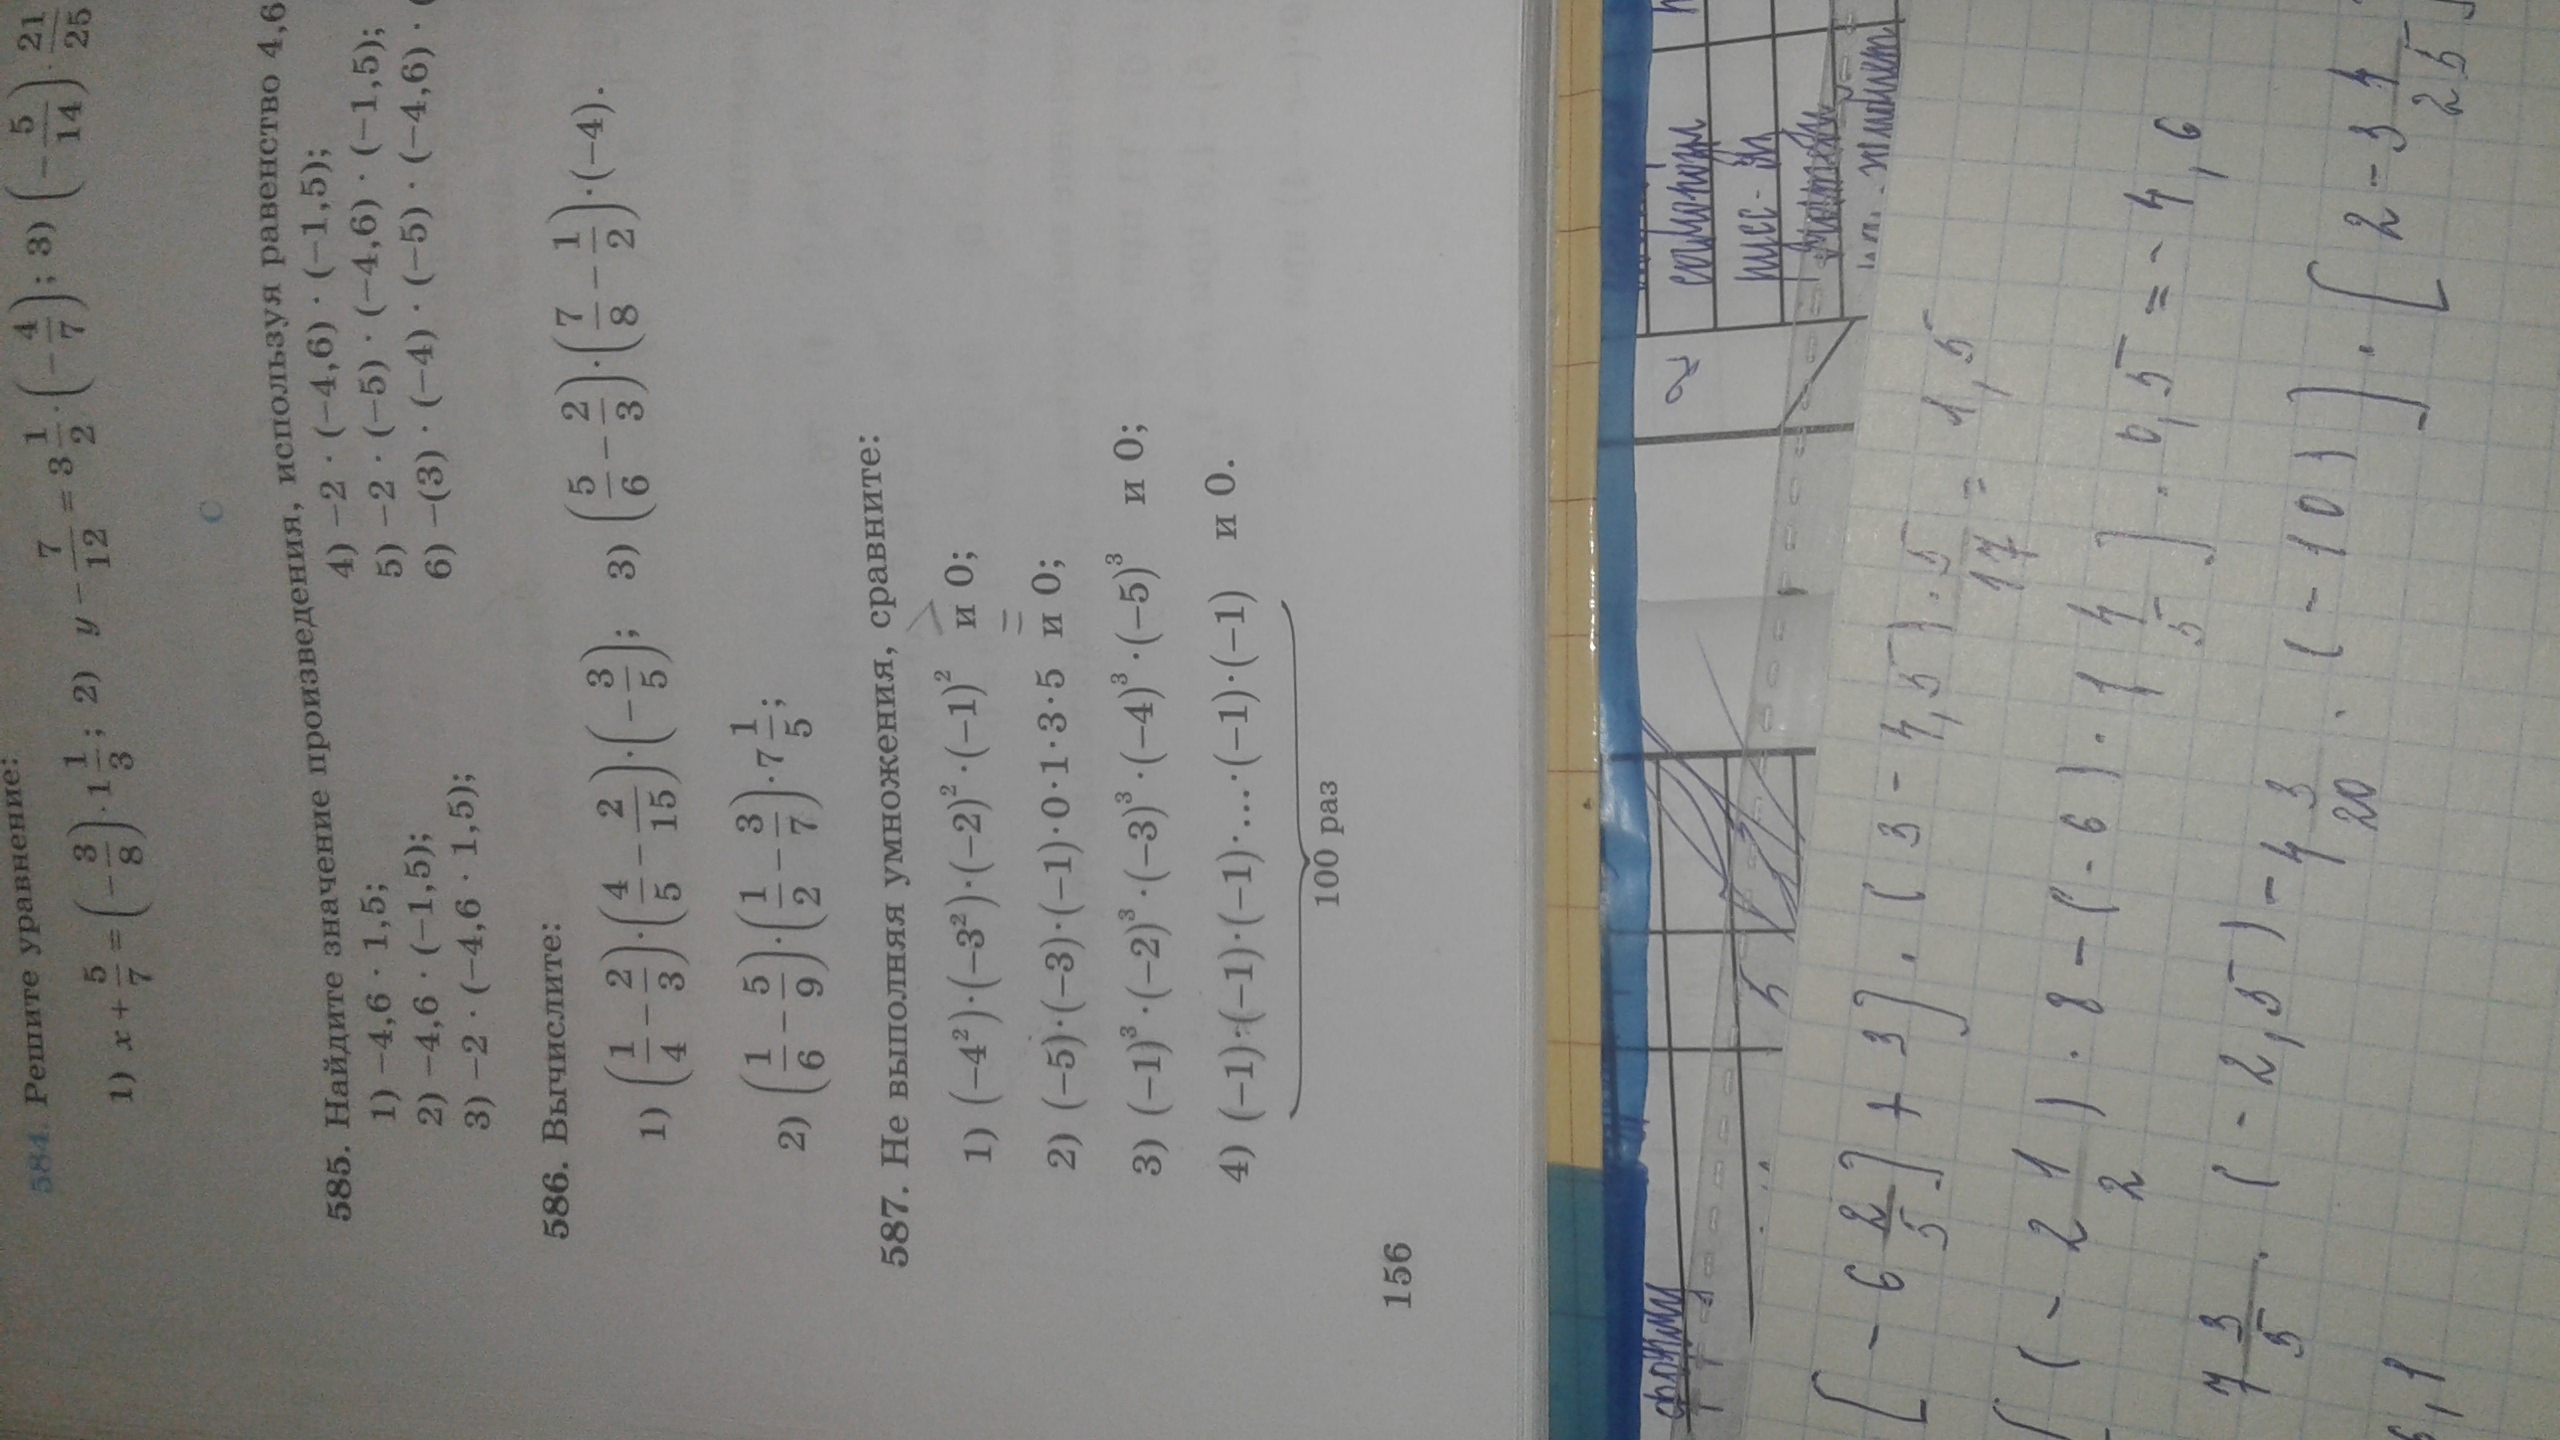 584. Решите уравнение:
1) x + 5/7 = (−3/8) · 1 1/3; 2) y − 7/12 = 3 1/2 · (−4/7); 3) (−5/14) · 21/25
С
585. Найдите значение произведения, используя равенство 4,6
1) −4,6 · 1,5;
2) −4,6 · (−1,5);
3) −2 · (−4,6 · 1,5);
4) −2 · (−4,6) · (−1,5);
5) −2 · (−5) · (−4,6) · (−1,5);
6) −(3) · (−4) · (−5) · (−4,6) ·
586. Вычислите:
1) (1/4 − 2/3) · (4/5 − 2/15) · (−3/5); 3) (5/6 − 2/3) · (7/8 − 1/2) · (−4).
2) (1/6 − 5/9) · (1/2 − 3/7) · 7 1/5;
587. Не выполняя умножения, сравните:
>
1) (−4²) · (−3²) · (−2)² · (−1)² и 0;
=
2) (−5) · (−3) · (−1) · 0 · 1 · 3 · 5 и 0;
3) (−1)³ · (−2)³ · (−3)³ · (−4)³ · (−5)³ и 0;
4) (−1) · (−1) · (−1) · ... · (−1) · (−1) и 0.
100 раз
156
[ − 6 2/5 ] + 3 ] · ( 3 − 4,5 ) · 5/17 = 1,5
[ ( − 2 1/2 ) · 8 − ( − 6 ) · 1 4/5 ] · 0,5 = − 4,6
7 3/5 · ( − 2,5 ) − 4 3/20 · ( − 10 ) ] · [ 2 − 3 4/25